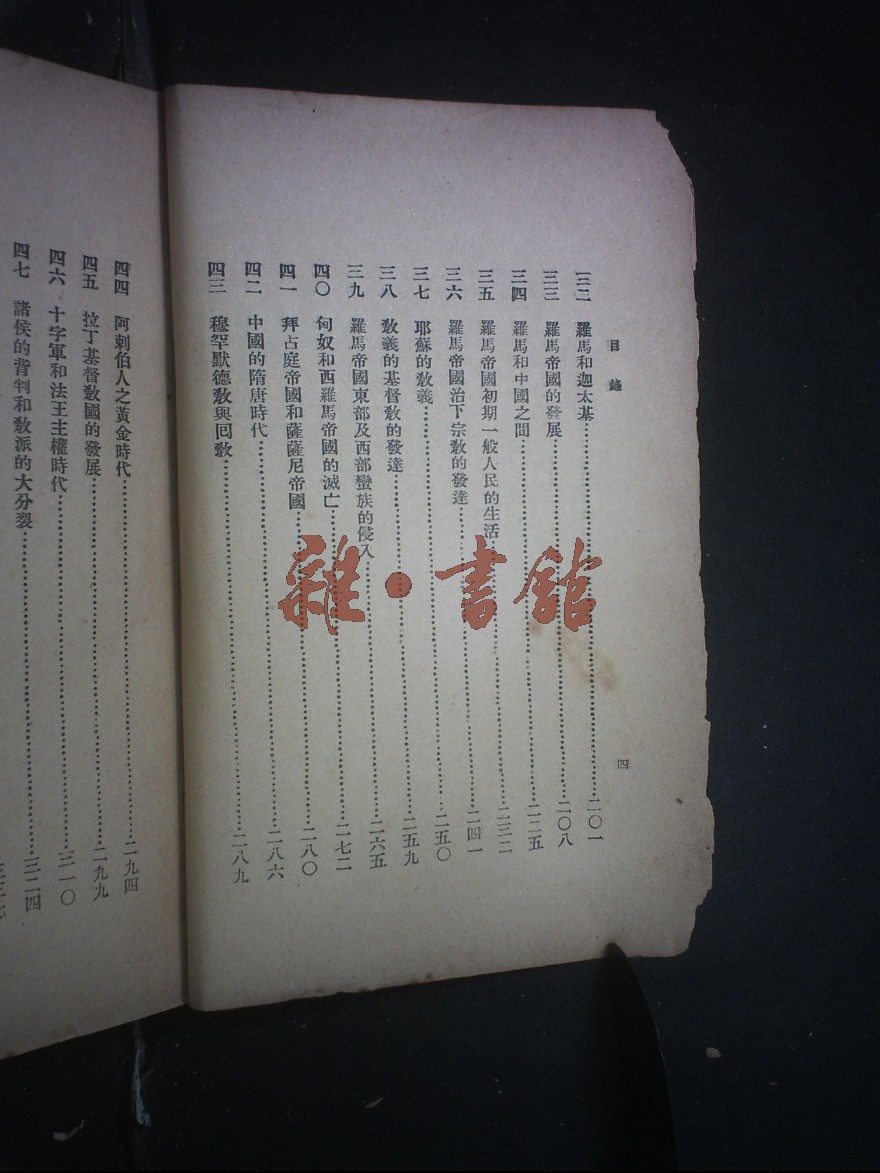 目錄
三二 羅馬和迦太基 二〇一
三三 羅馬帝國的發展 二〇八
三四 羅馬和中國之間 二二五
三五 羅馬帝國初期一般人民的生活 二三二
三六 羅馬帝國治下宗教的發達 二四一
三七 耶蘇的教義 二五〇
三八 教義的基督教的發達 二五九
三九 羅馬帝國東部及西部蠻族的侵入 二六五
四〇 匈奴和西羅馬帝國的滅亡 二七二
四一 拜占庭帝國和薩薩尼帝國 二八〇
四二 中國的隋唐時代 二八六
四三 穆罕默德教與回教 二八九
四
四四 阿剌伯人之黃金時代 二九四
四五 拉丁基督教國的發展 二九九
四六 十字軍和法王主權時代 三一〇
四七 諸侯的背判和教派的大分裂 三二四
雜·書館